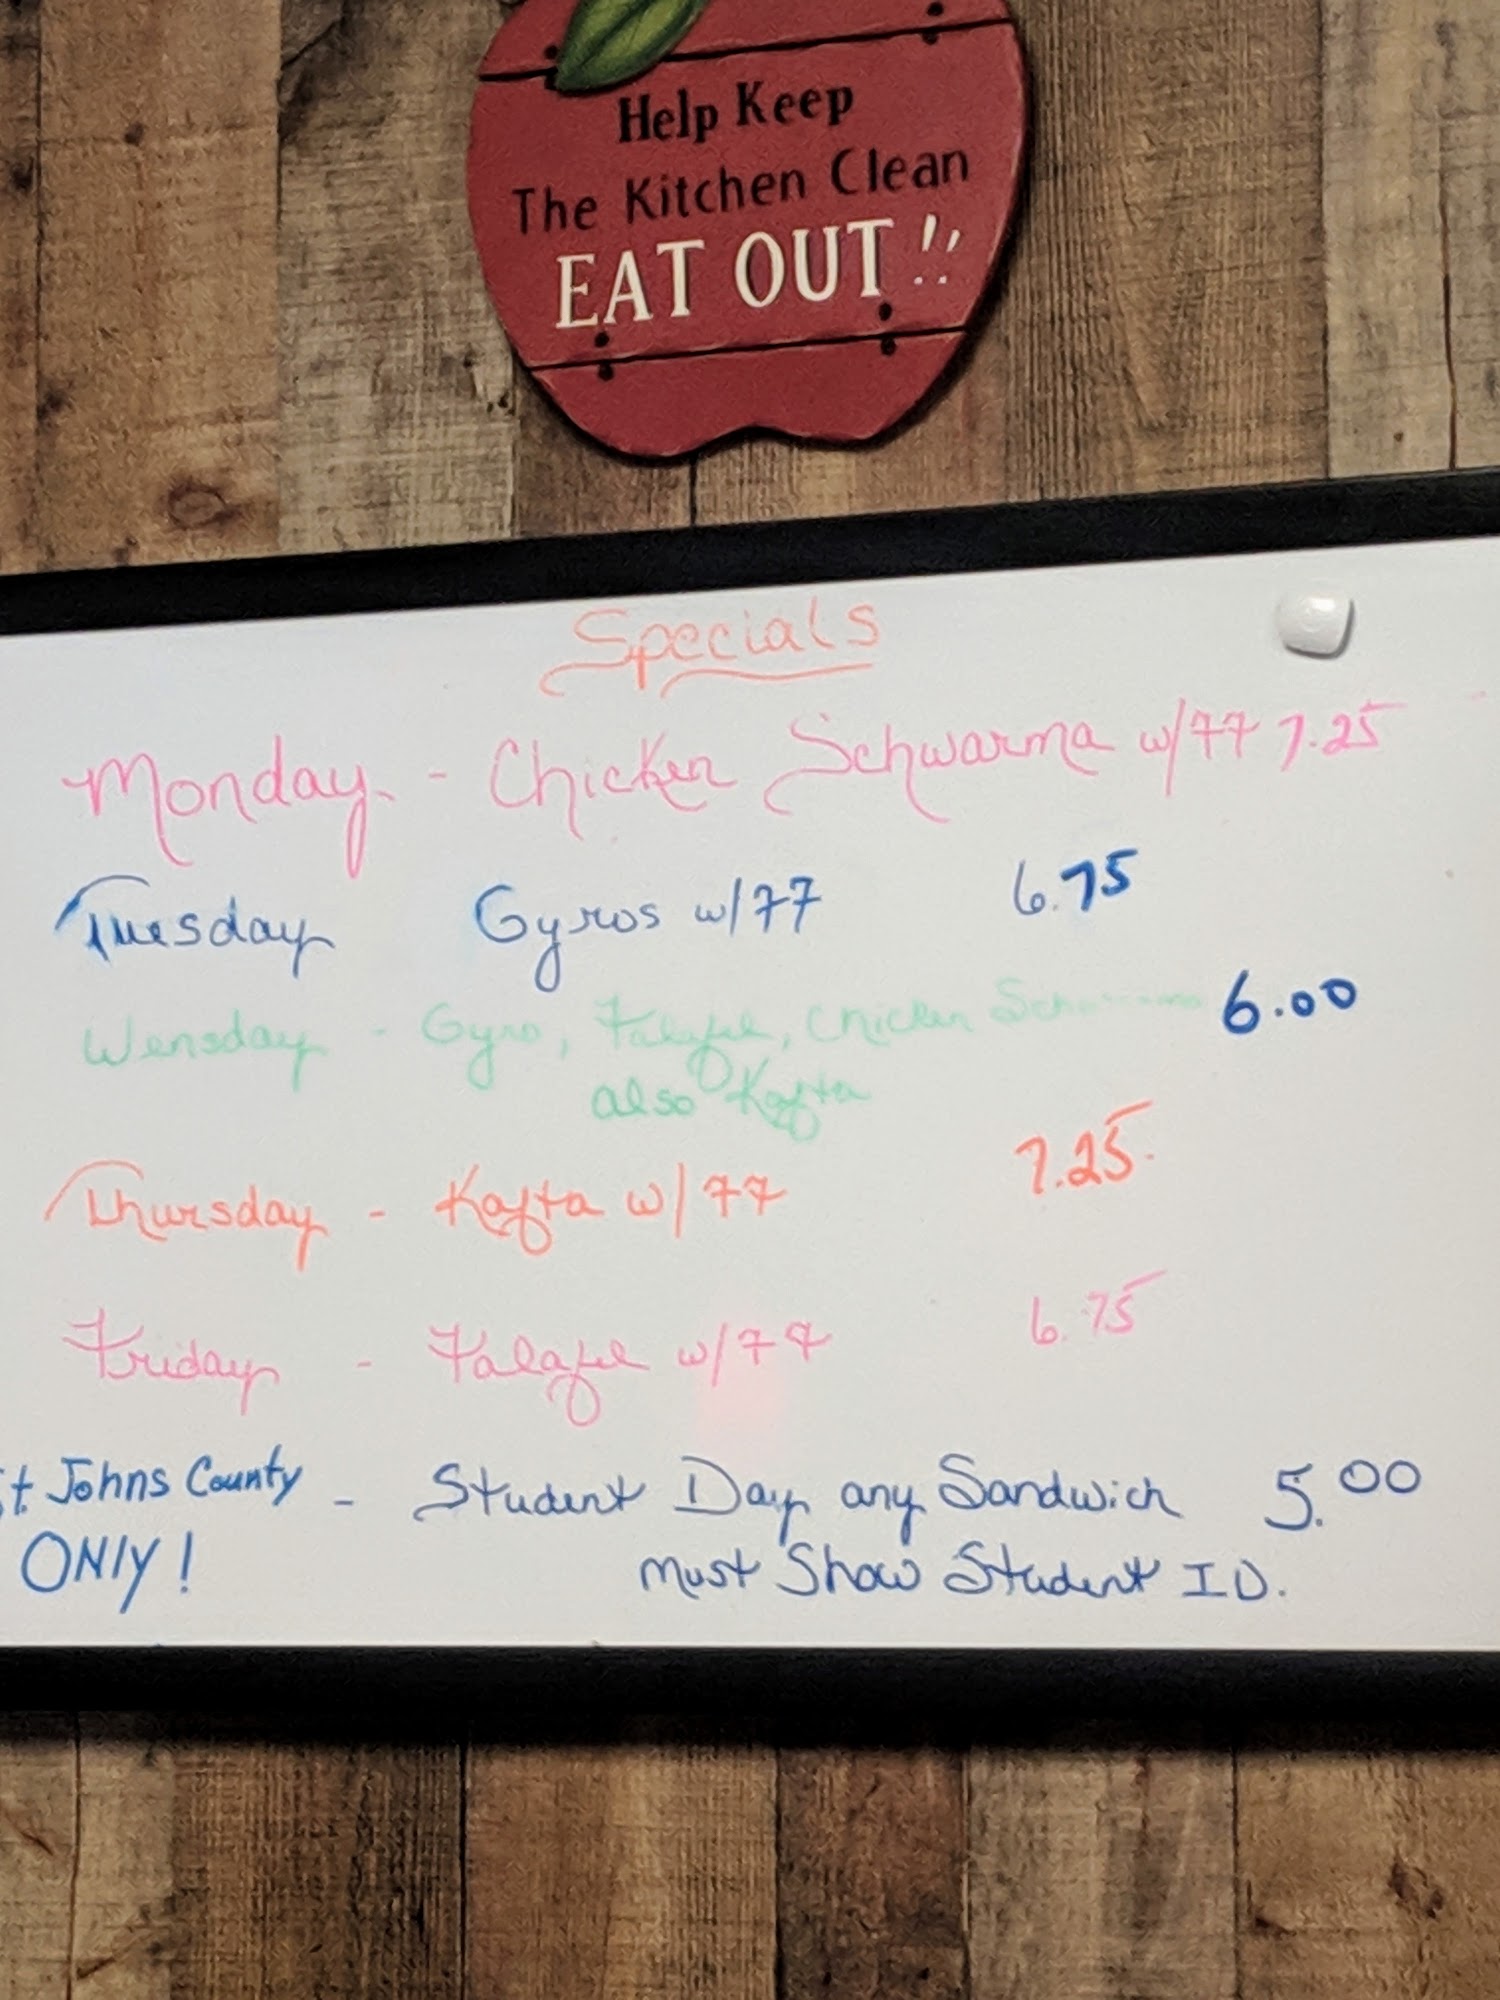 Help Keep
The Kitchen Clean
EAT OUT!!
Specials
Monday - Chicken Schwarma w/77 7.25
Tuesday Gyros w/77 6.75
Wensday - Gyro, Falafel, Chicken 6.00
also Kafta
Thursday - Kafta w/77 7.25
Friday - Falafel w/77 6.75
st Johns County - Student Day any Sandwich 5.00
ONlY! must Show Student ID.